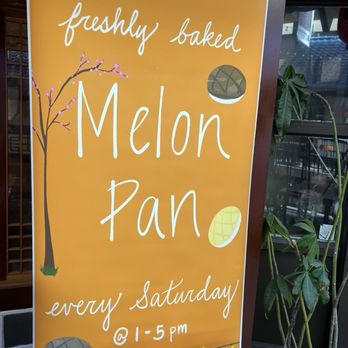 freshly baked
Melon
Pan
every Saturday
@ 1-5 pm